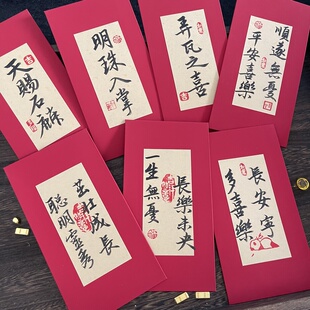 天賜石麟
明珠入掌
弄瓦之喜
順遂無憂
平安喜樂
茁壯成長
聰明靈秀
長樂未央
一生無憂
長安寧
多喜樂